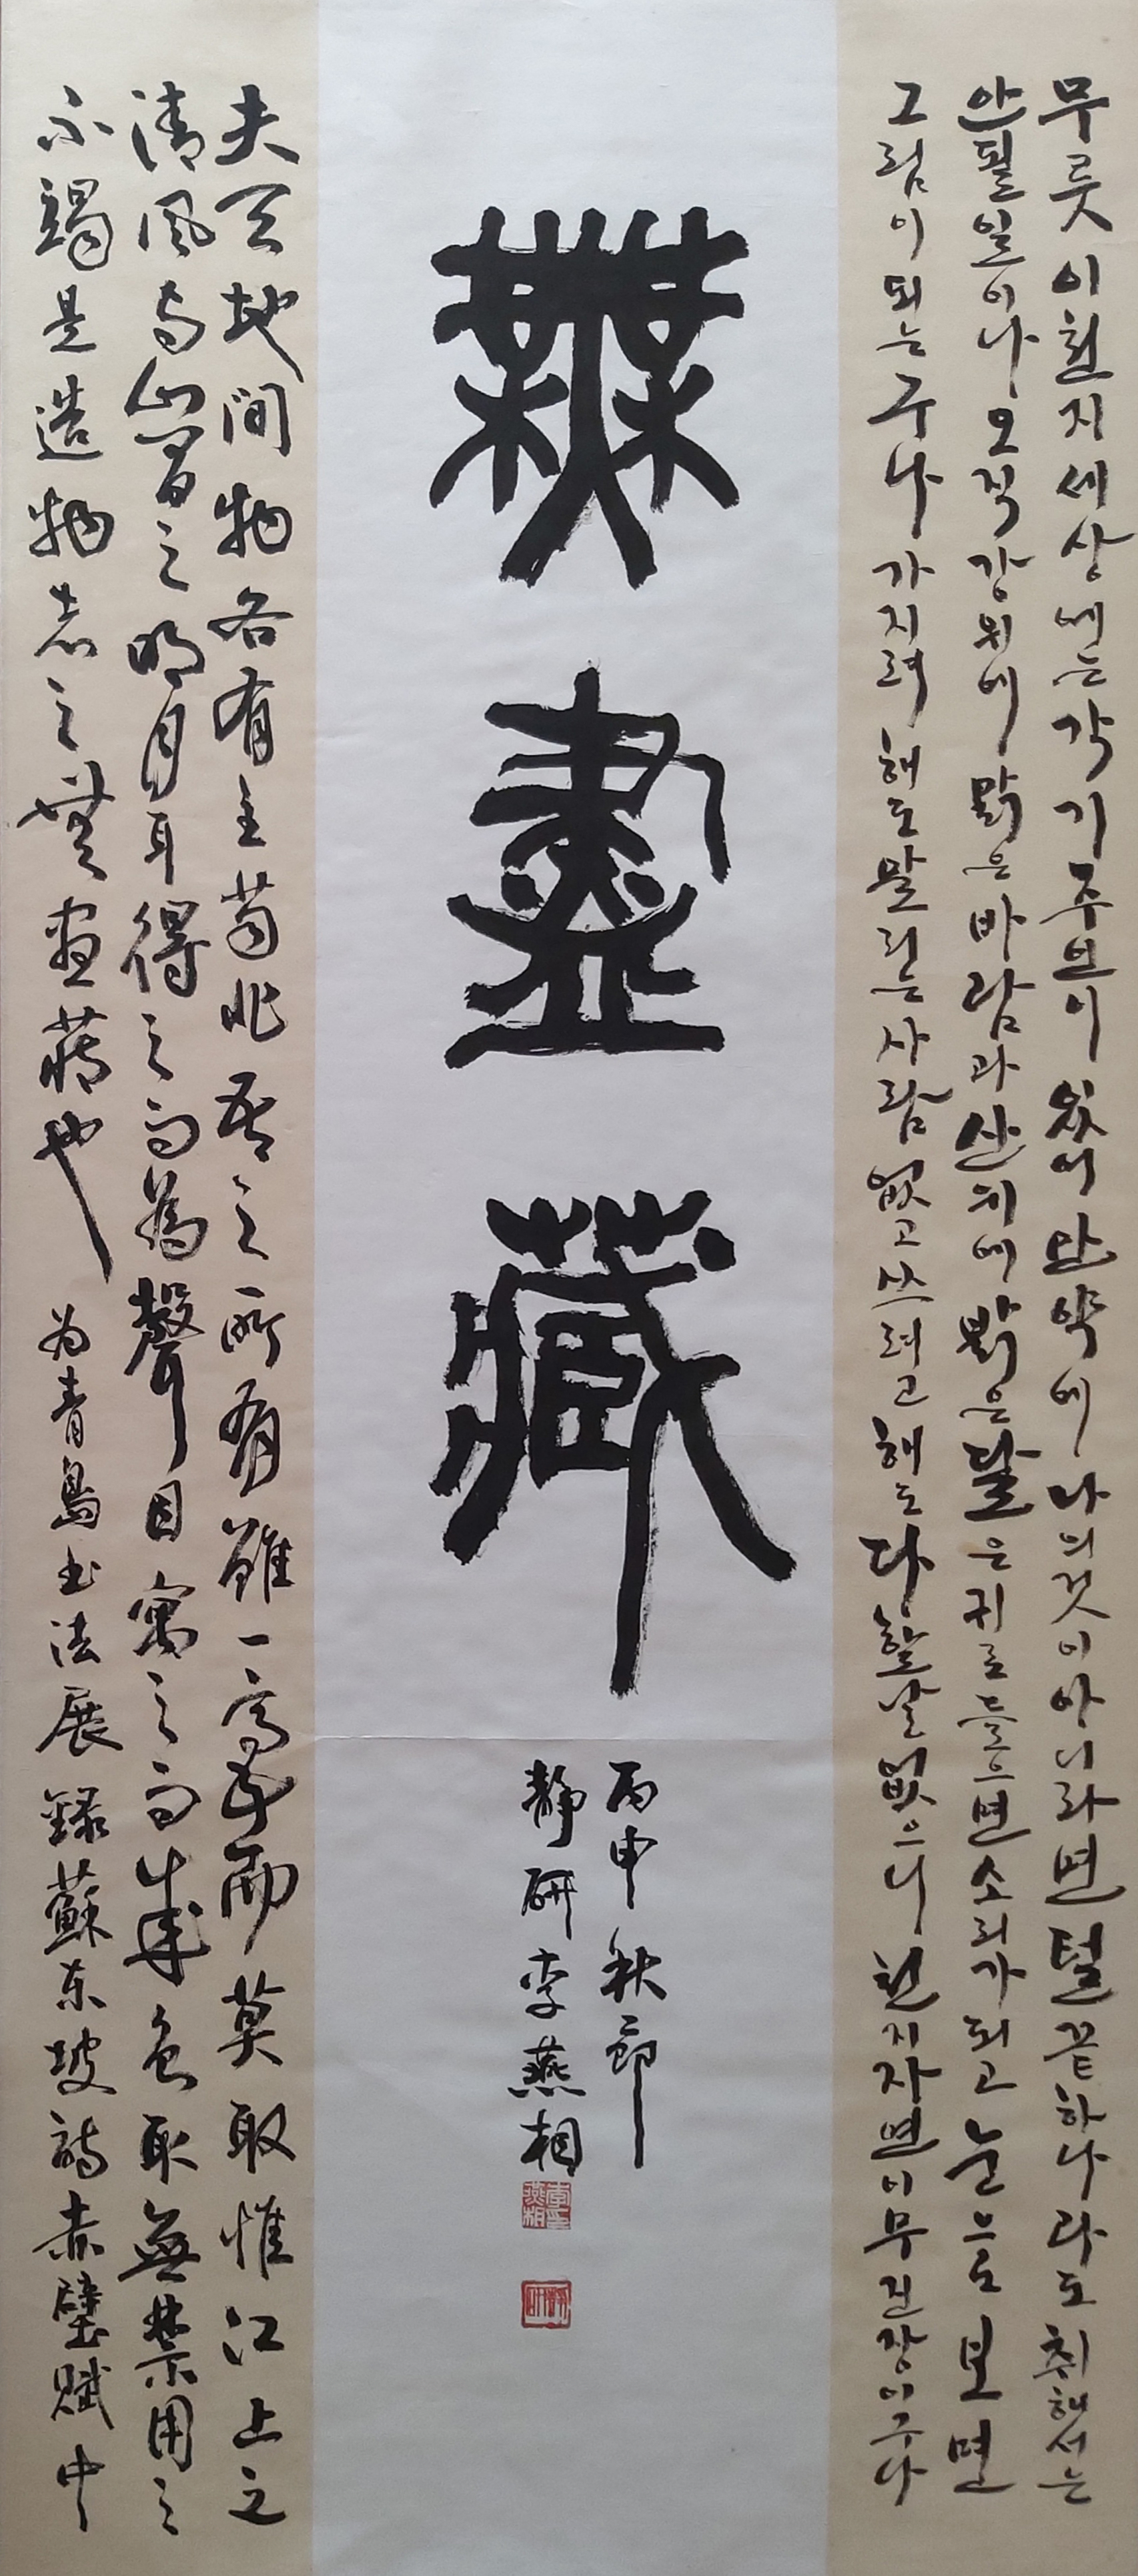 무릇 이 천지 세상에는 각기 주인이 있어 만약에 나의 것이 아니라면 털끝 하나라도 취해서는
안될 일이나 오직 강위에 맑은 바람과 산위에 밝은 달은 귀로 들으면 소리가 되고 눈으로 보면
그림이 되는구나 가지려 해도 말리는 사람 없고 쓰려고 해도 다할날 없으니 천지자연이 무진장이구나
無盡藏
丙申秋節
靜研李燕相
夫天地間物各有主苟非吾之所有雖一毫而莫取惟江上之
清風与山間之明月耳得之而為聲目寓之而成色取無禁用之
不竭是造物者之無盡藏也 为青鳥书法展 録蘇东坡詩赤壁賦中